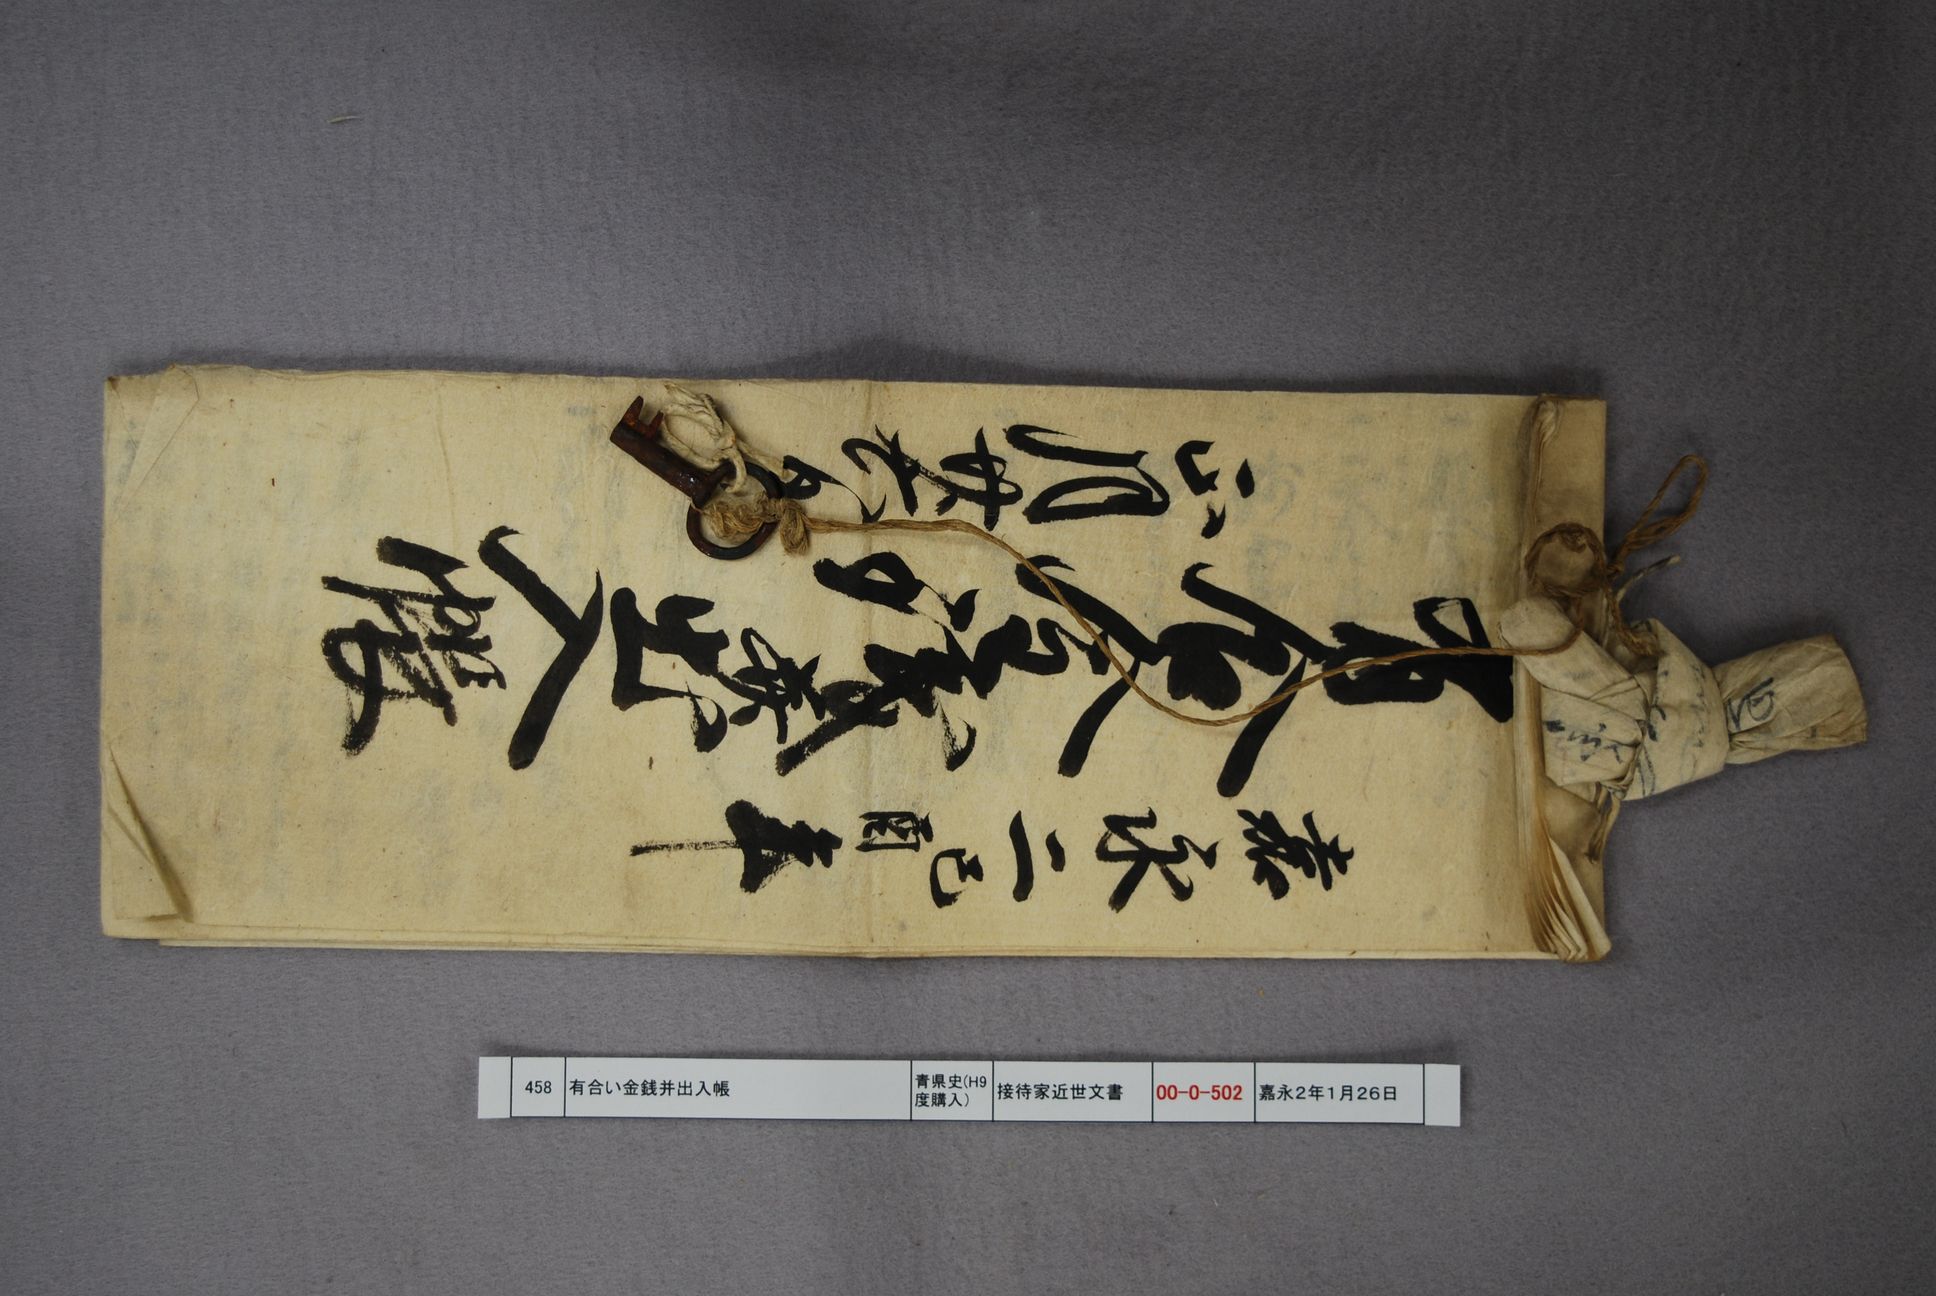 嘉永二己酉年
有合金銭并出入帳
正月廿六日
458 有合い金銭并出入帳 青県史(H9度購入) 接待家近世文書 00-0-502 嘉永2年1月26日